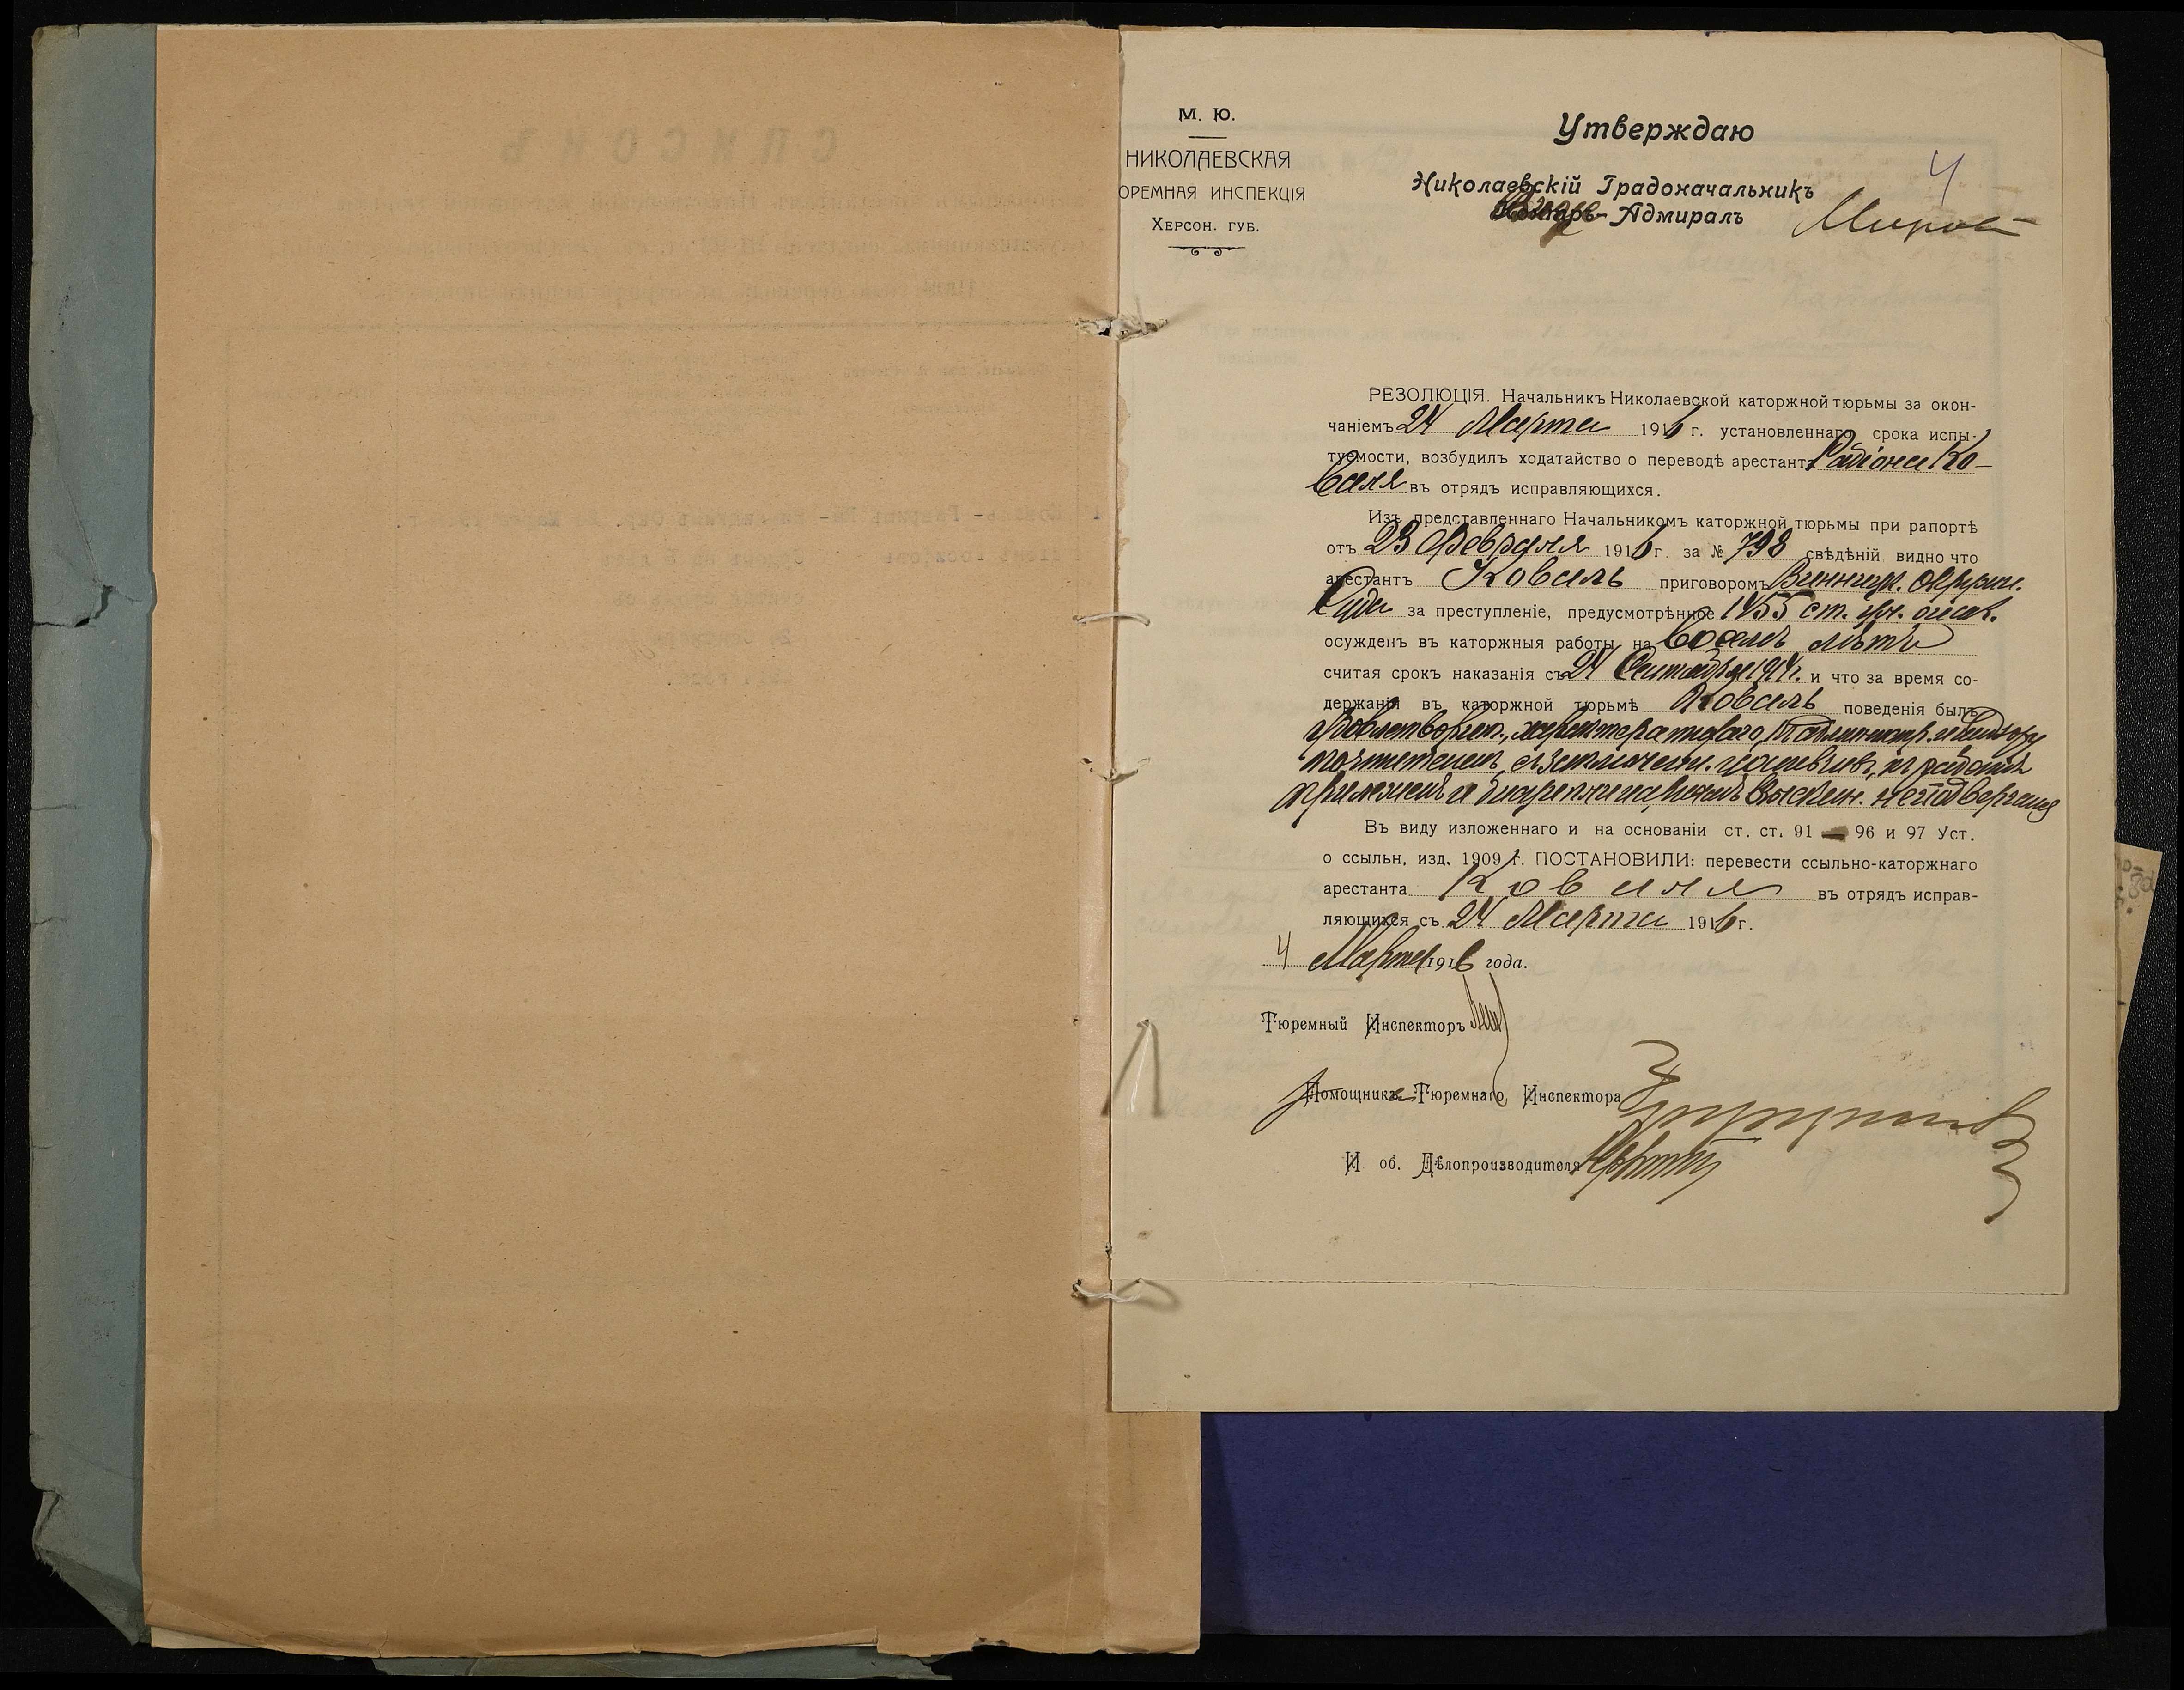 М. Ю.
НИКОЛАЕВСКАЯ
ОРЕМНАЯ ИНСПЕКЦІЯ
ХЕРСОН. ГУБ.
Утверждаю
4
Николаевскій Градоначальникъ
Адмиралъ
РЕЗОЛЮЦІЯ. Начальникъ Николаевской каторжной тюрьмы за окон-
чаніемъ 24 Марта 1916 г. установленнаго срока испы-
туемости, возбудилъ ходатайство о переводѣ арестанта Радіона Ко-
валя въ отрядъ исправляющихся.
Изъ представленнаго Начальникомъ каторжной тюрьмы при рапортѣ
отъ 23 Февраля 1916 г. за № 798 свѣдѣній видно что
арестантъ Коваль приговоромъ Винниц. Окружн.
Суда за преступленіе, предусмотрѣнное 1455 ст. Ул. о нак.
осужденъ въ каторжныя работы на восемь лѣтъ
считая срокъ наказанія съ 24 Сентября 1914 г. и что за время со-
держанія въ каторжной тюрьмѣ Коваль поведенія былъ
удовлетворит., характера тихаго, къ администр. и надзору
почтителенъ, съ заключенн. уживчивъ, къ работѣ
прилеженъ и дисциплинарнымъ взыскан. не подвергался
Въ виду изложеннаго и на основаніи ст. ст. 91 — 96 и 97 Уст.
о ссыльн. изд. 1909 г. ПОСТАНОВИЛИ: перевести ссыльно-каторжнаго
арестанта Коваля въ отрядъ исправ-
ляющихся съ 24 Марта 1916 г.
4 Марта 1916 года.
Тюремный Инспекторъ
Помощникъ Тюремнаго Инспектора
И об. Дѣлопроизводителя